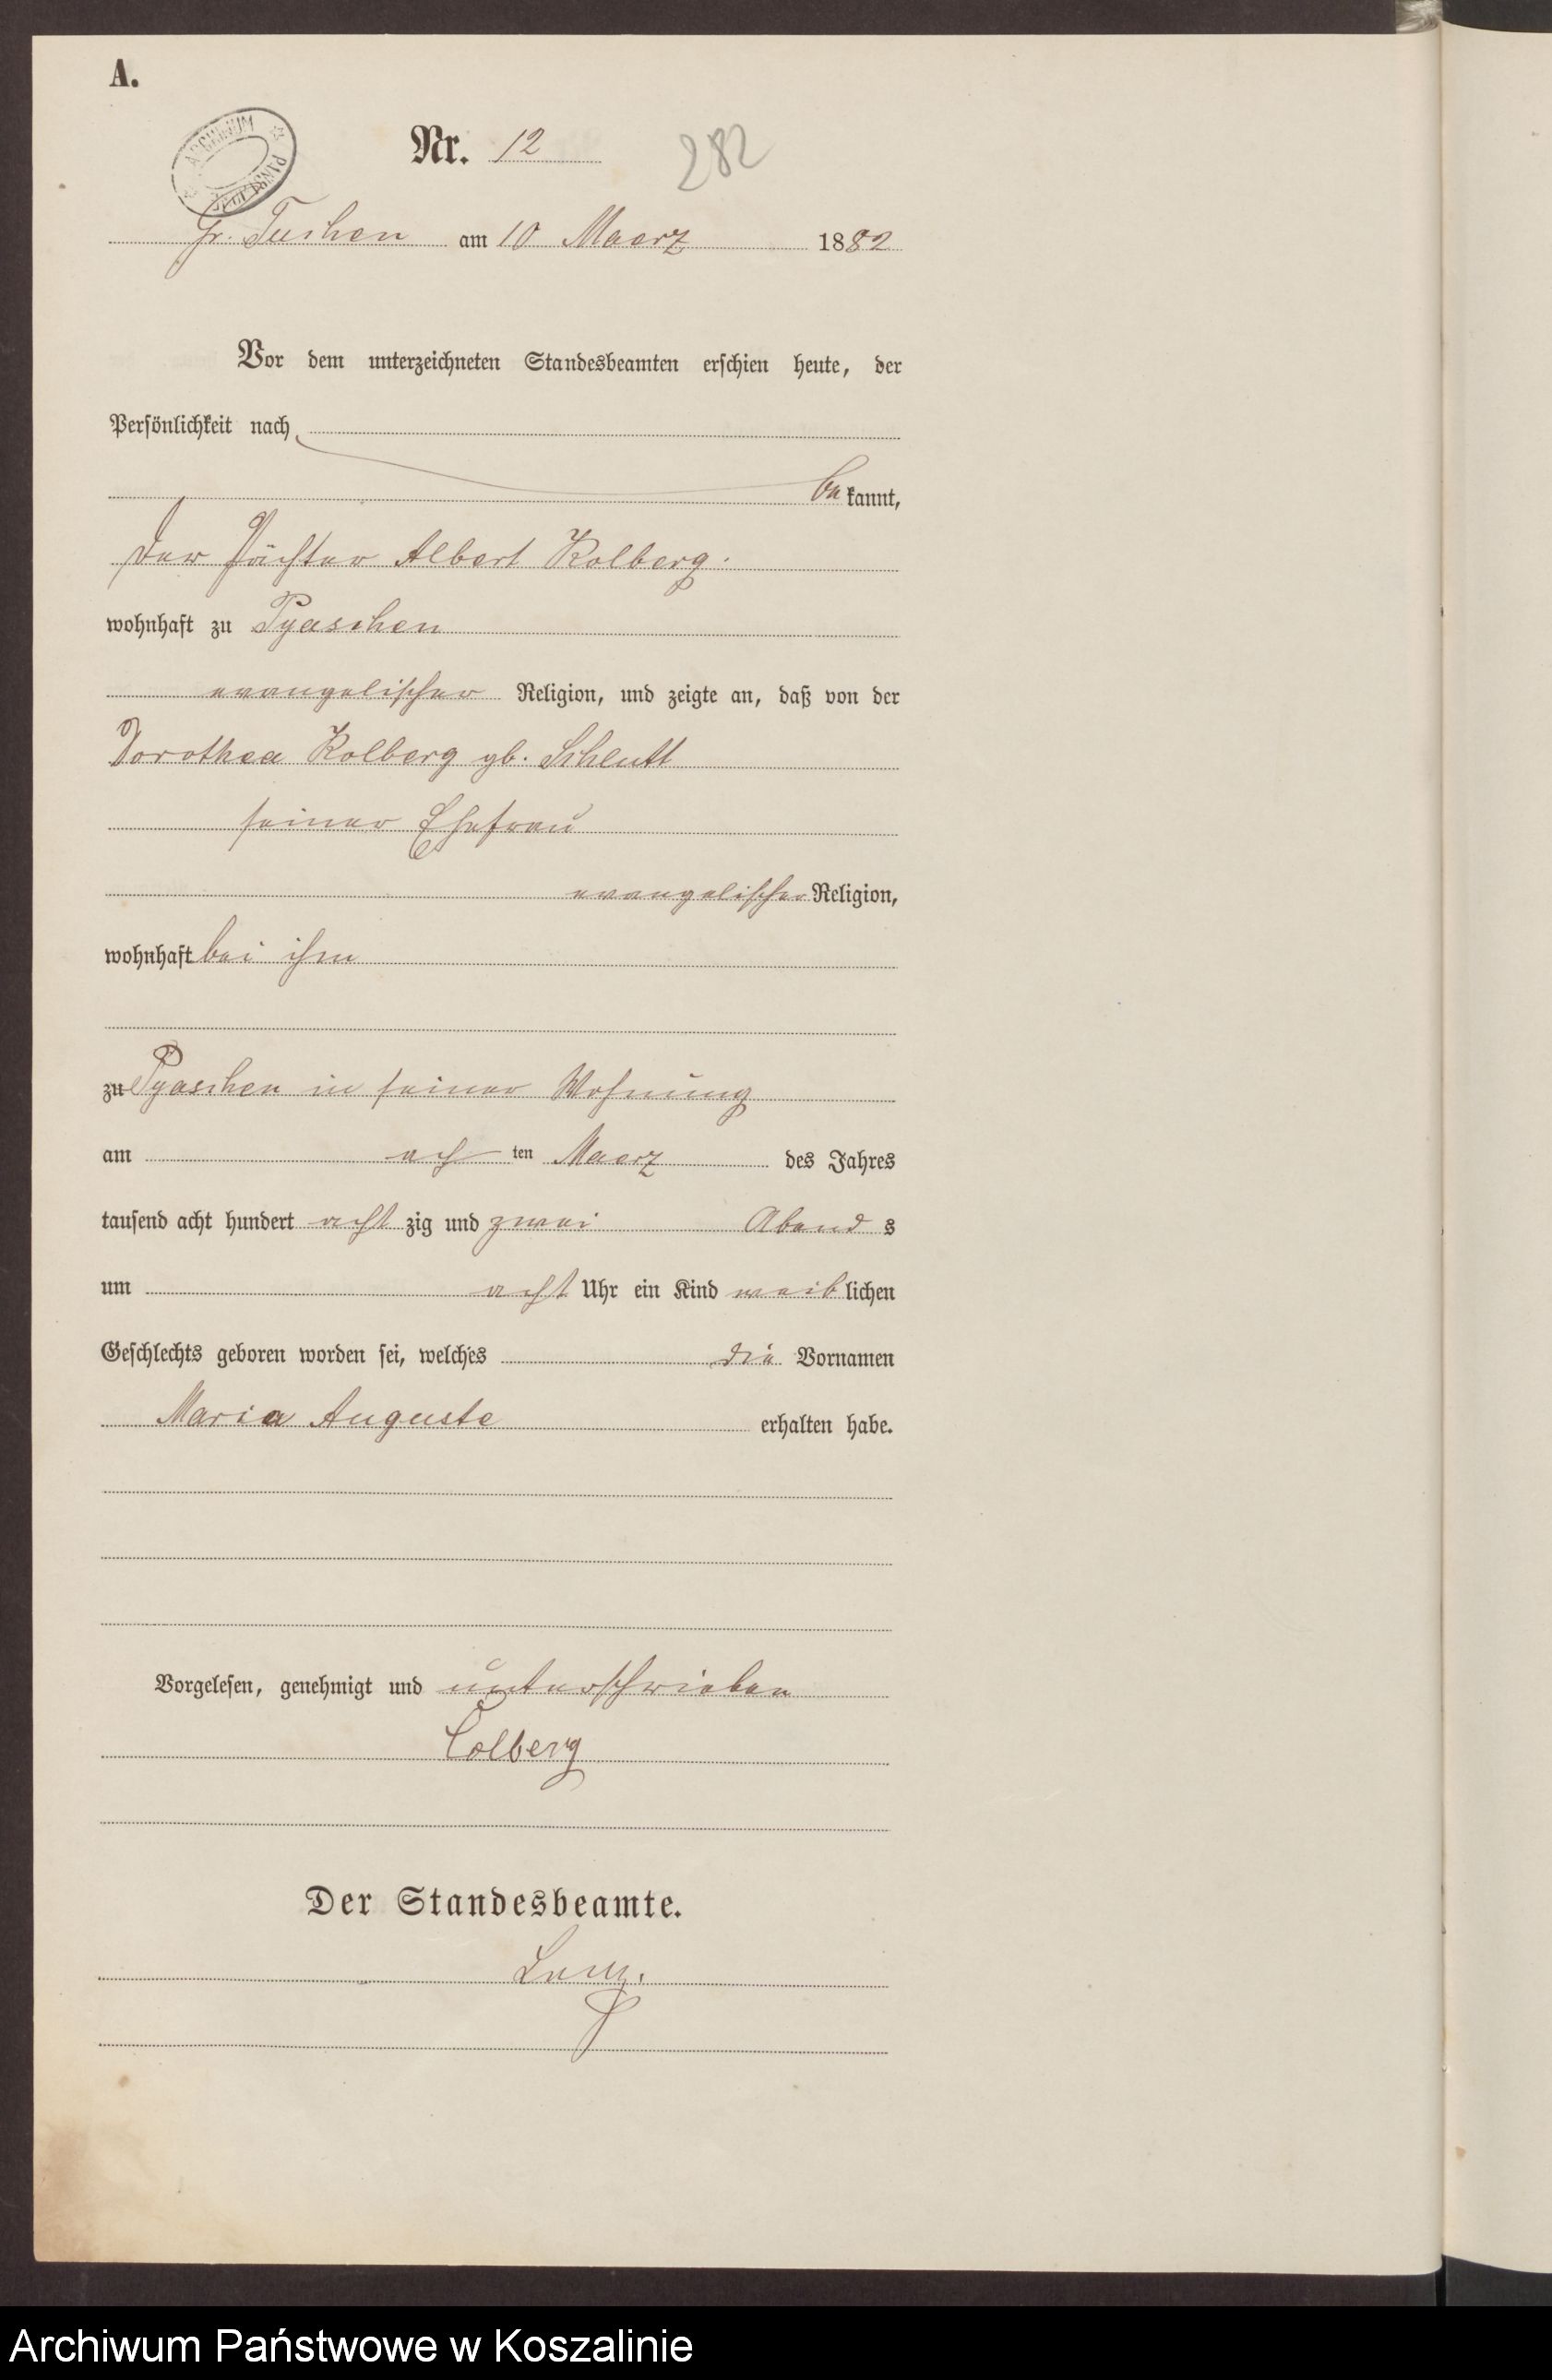 A.
Nr. 12 282
Gr. Tuchen am 10 Maerz 1882
Vor dem unterzeichneten Standesbeamten erschien heute, der
Persönlichkeit nach
bekannt,
der Pächter Albert Kolberg.
wohnhaft zu Pyaschen
evangelischer Religion, und zeigte an, daß von der
Dorothea Kolberg gb. Schlutt
seiner Ehefrau
evangelischer Religion,
wohnhaft bei ihm
zu Pyaschen in seiner Wohnung
am ach ten Maerz des Jahres
tausend acht hundert acht zig und zwei Abend s
um acht Uhr ein Kind weib lichen
Geschlechts geboren worden sei, welches die Vornamen
Maria Auguste erhalten habe.
Vorgelesen, genehmigt und unterschrieben
Colberg
Der Standesbeamte.
Archiwum Państwowe w Koszalinie